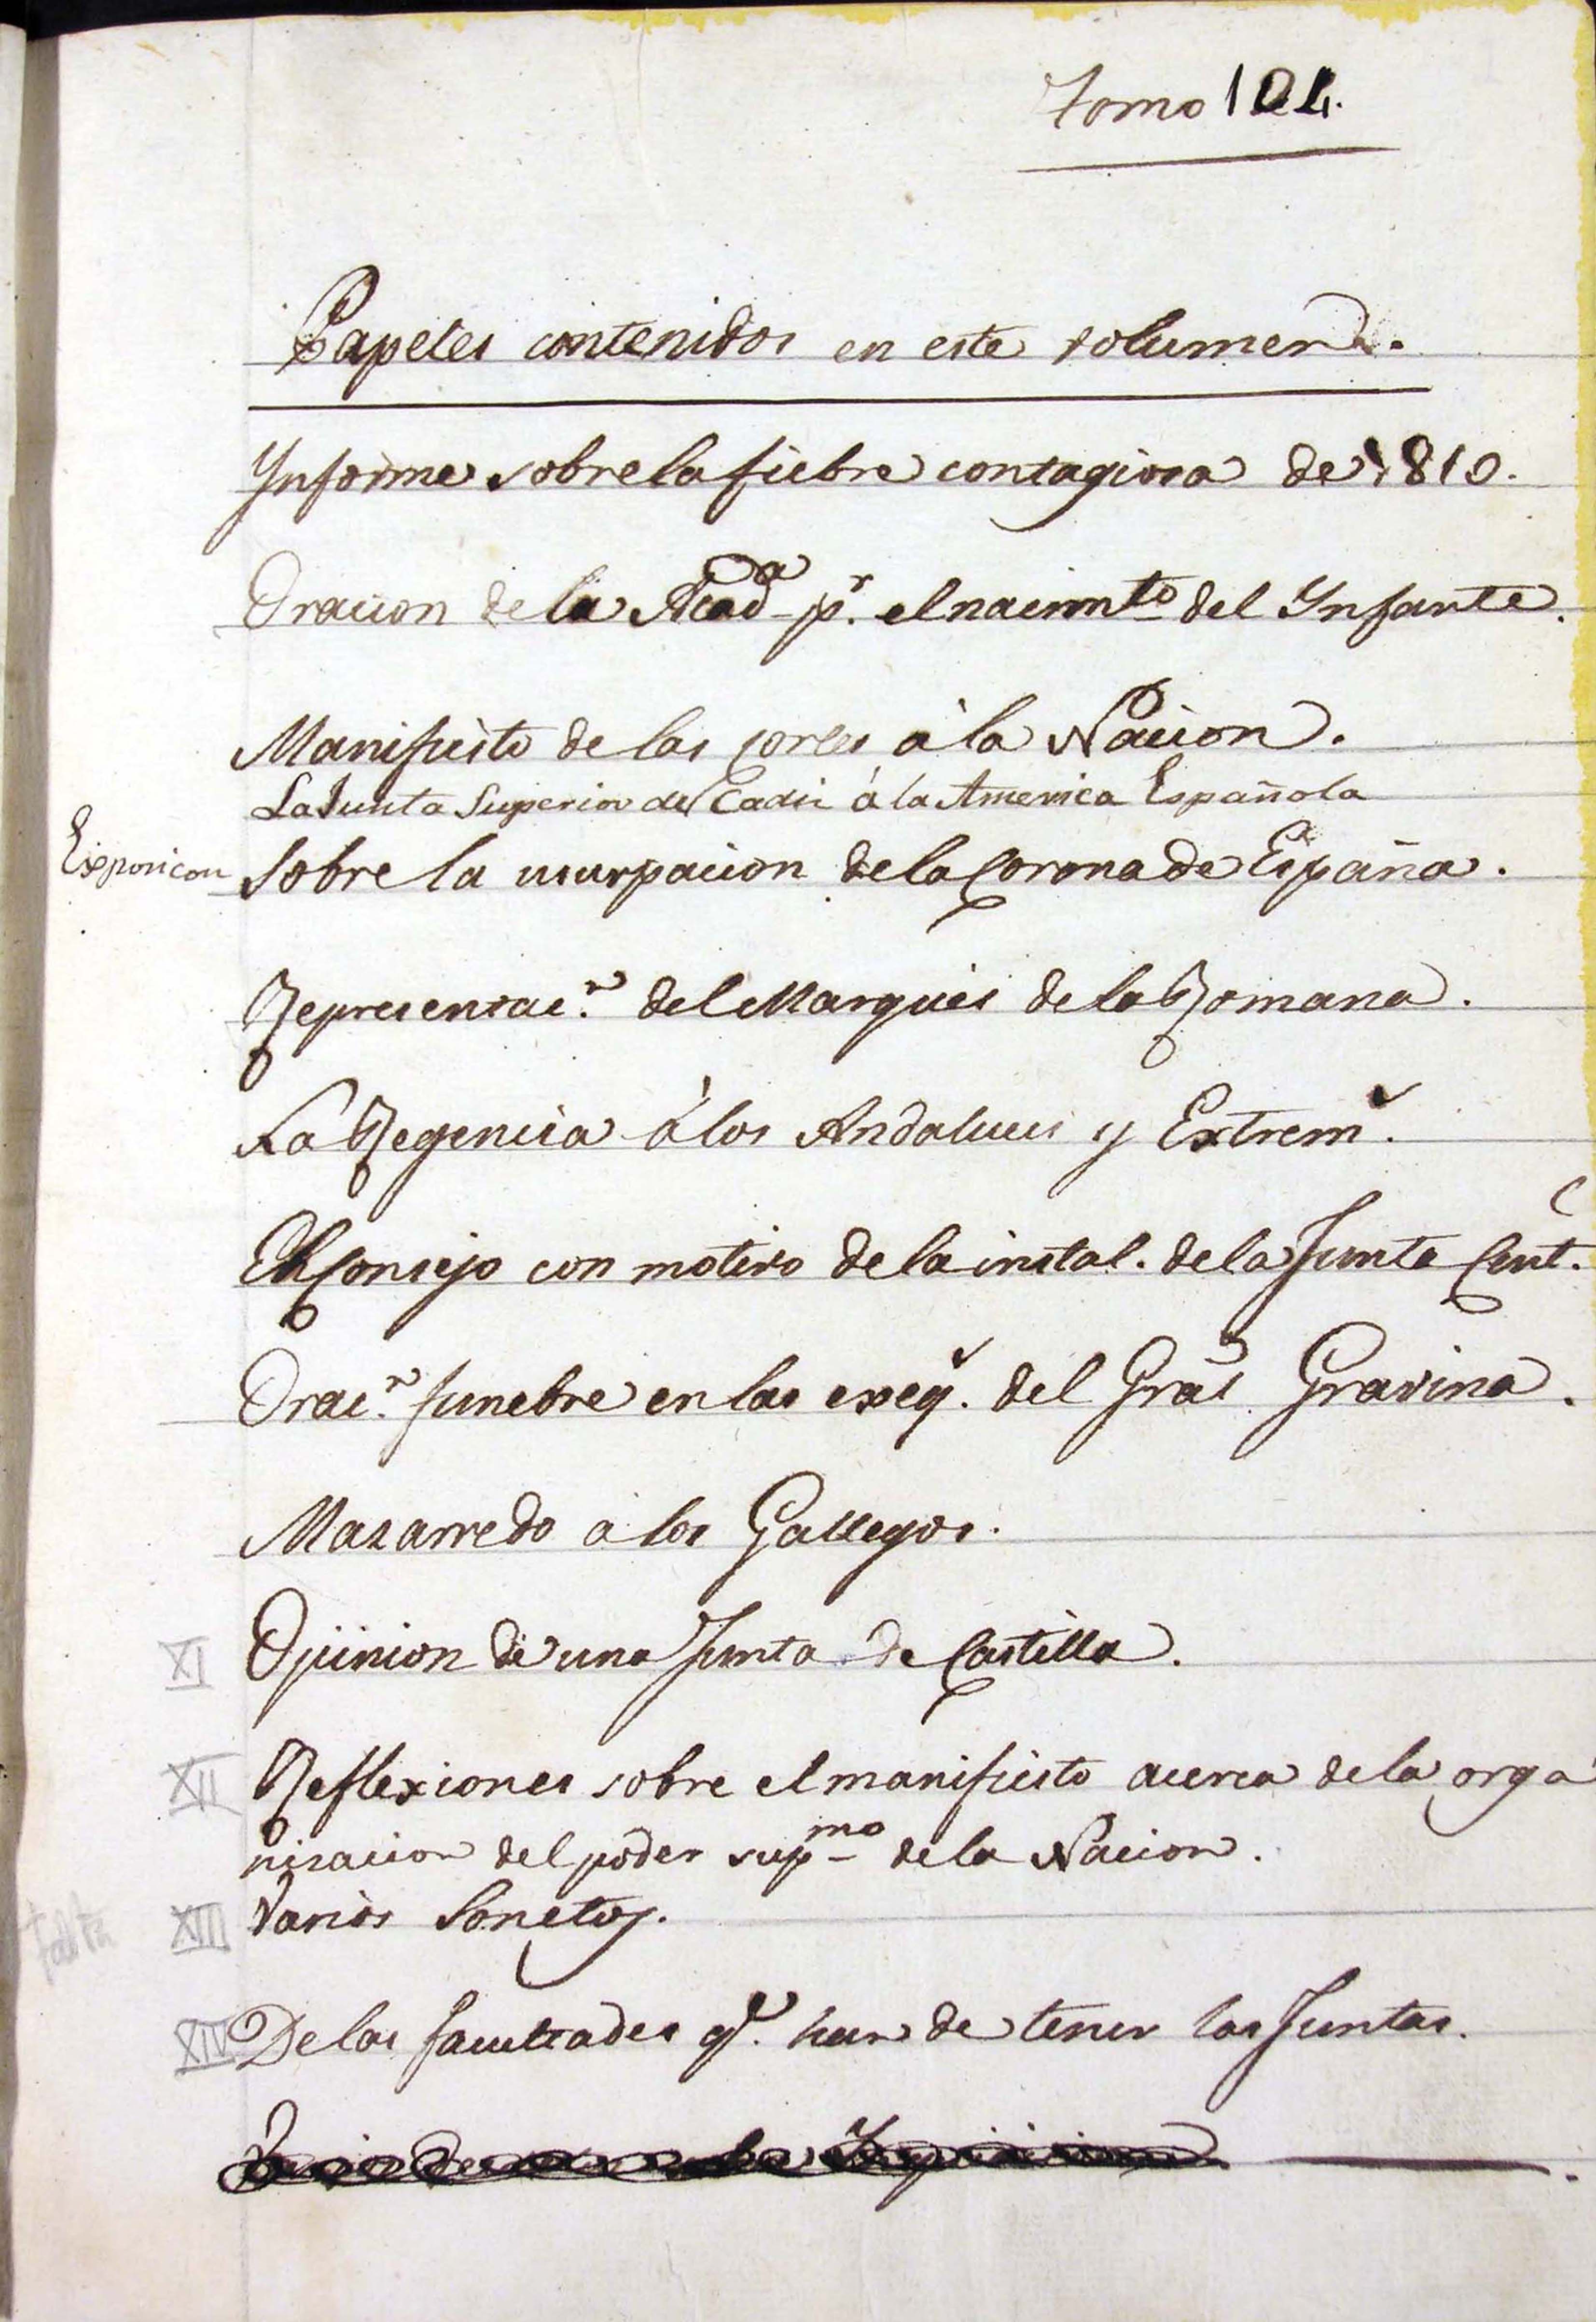 Tomo 104.
Papeles contenidos en este volumen.
Ynforme sobre la fiebre contagiosa de 1810.
Oracion de la Acad.ª p.r el nacimto del Ynfante.
Manifiesto de las Cortes à la Nacion.
La Junta Superior de Cadiz á la America Española
Exposicon Sobre la usurpacion de la Corona de España.
Representac.n del Marques de la Romana.
La Regencia à los Andaluces y Extrem.s
El Consejo con motivo de la instal. de la Junta Cent.
Orac.n funebre en las exeq.s del Gral Gravina.
Mazarredo à los Gallegos.
XI Opinion de una Junta de Castilla.
XII Reflexiones sobre el manifiesto acerca de la orga
nizacion del poder supmo de la Nacion.
falta XIII Varios Sonetos.
XIV De las facultades q.e han de tener las Juntas.